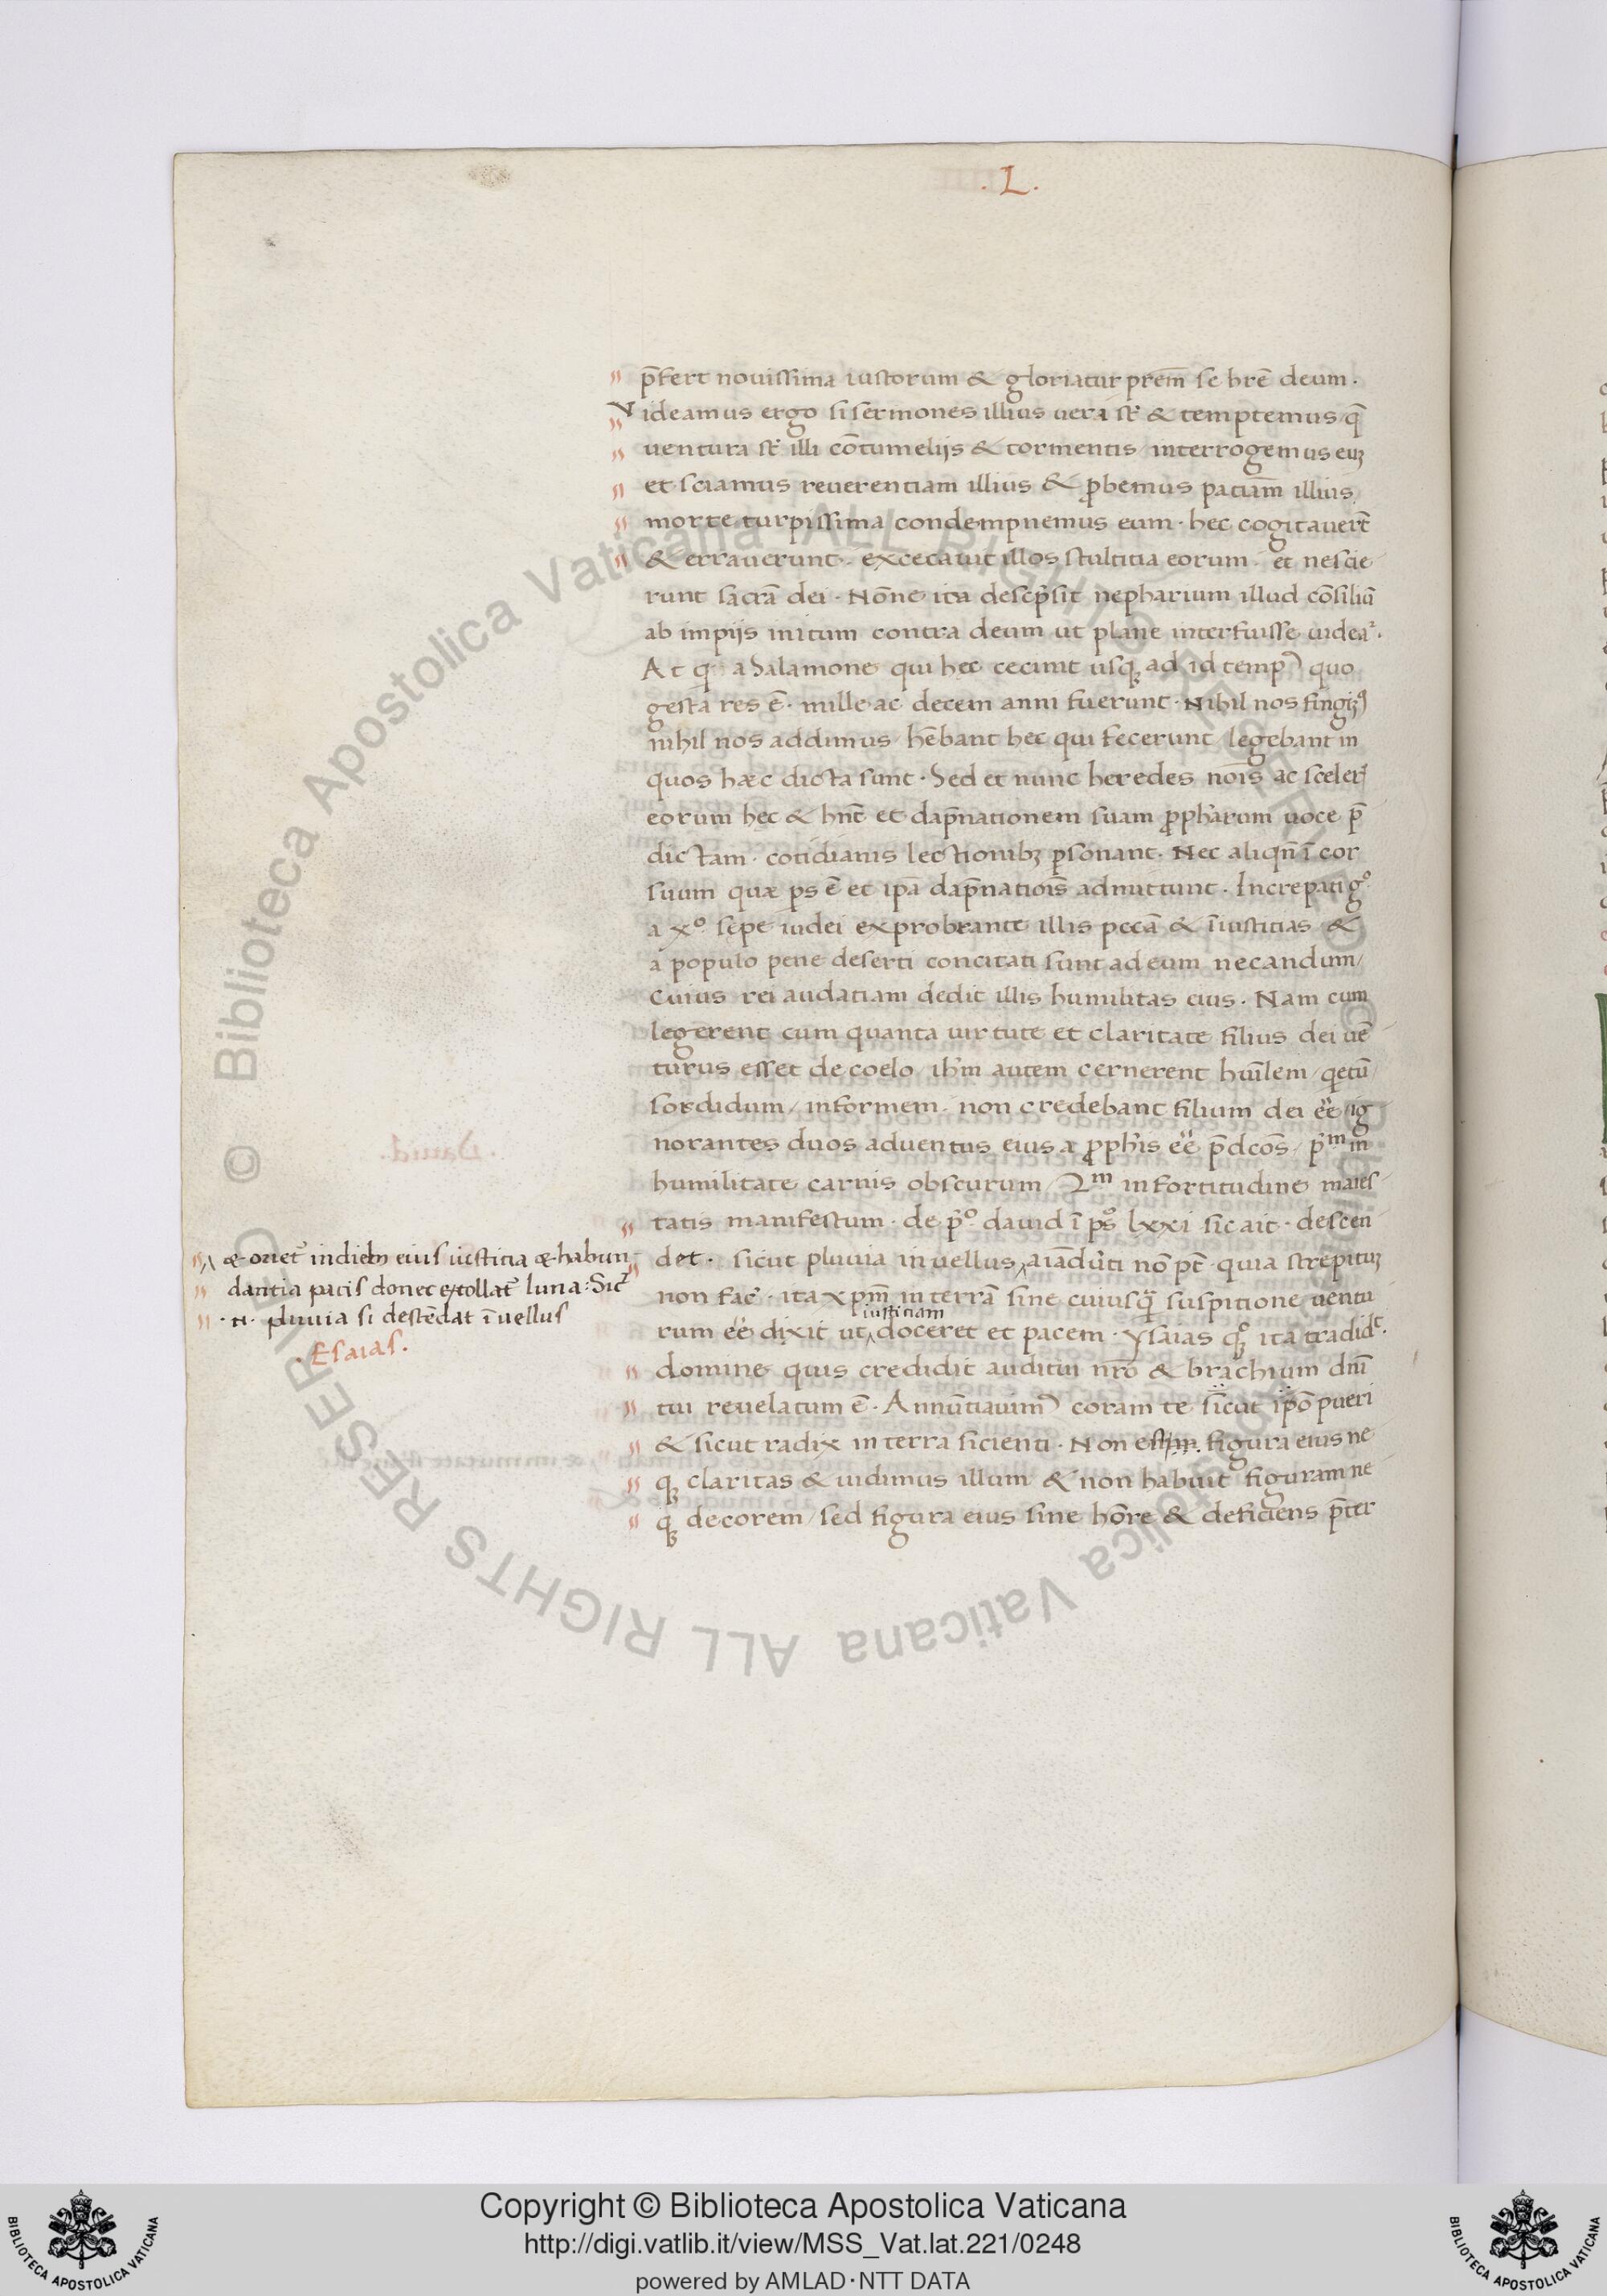 .L.
p̄fert nouissima iustorum & gloriatur prem̄ se hrē deum.
Videamus ergo si sermones illius ueri st̄ & temptemus q̄
uentura st̄ illi cōtumelijs & tormentis / interrogemus euȝ
et sciamus reuerentiam illius & ꝓbemus patiam̄ illius
morte turpissima condempnemus eum. hec cogitauert̄
& errauerunt. excecauit illos stultitia eorum. et nescie
runt sacrā dei. Nōne ita descpsit nepharium illud cōsiliū
ab impijs initum contra deum ut plane interfuisse uidea2.
At q a Salamone qui hec cecinit usqȝ ad id temp9 quo
gesta res ē. mille ac decem anni fuerunt. Nihil nos fingiȝ9
nihil nos addimus / hēbant hec qui fecerunt legebant in
quos hæc dicta sunt. Sed et nunc heredes nōis ac sceler
eorum hec & hnt̄ et dap̄nationem suam ꝓpharum uoce p̄
dictam. cotidianis lectionibȝ ꝑsonant. Nec aliqn̄ ī cor
suum quæ ps ē et ipā dap̄natiōis admittunt. Increpati g°
a x° sepe iudei exprobrante illis pccā & īiusticias &
a populo pene deserti concitati sunt ad eum necandum /
Cuius rei audatiam dedit illis humilitas eius. Nam cum
legerent cum quanta uirtute et claritate filius dei uē
turus esset de coelo / ihm̄ autem cernerent huīlem / qetū /
sordidum / informem. non credebant filium dei eē̈ / ig
norantes duos aduentus eius a ꝓphis eē̈ p̄dcōs / pm in
humilitate carnis obscurum / 2m in fortitudine maies
tatis manifestum. de p° dauid ī ps° lxxi sic ait. descen
det. sicut pluuia in uellus aīaduti nō pt̄. quia strepituȝ
non fac̄. ita xpm̄ in terrā sine cuiusq̈ suspitione uentu
iusticiam
rum eē̈ dixit ut doceret et pacem. Ysaias qȝ° ita tradidt.
domine quis credidit auditui nrō & brachium dnī
tui reuelatum ē. Annūtiauim9 coram te sicut ipō pueri
& sicut radix in terra sicienti. Non est figura eius ne
qȝ claritas & uidimus illum & non habuit figuram ne
qȝ decorem / sed figura eius sine hōre & deficiens p̄ter
& oriet̄ in dieb eius iusticia & habun
dantia pacis donec extollat̄ luna: Sic
.n. pluuia si descēdat ī uellus
.Esaias.
Copyright © Biblioteca Apostolica Vaticana
http://digi.vatlib.it/view/MSS_Vat.lat.221/0248
powered by AMLAD·NTT DATA
BIBLIOTECA APOSTOLICA VATICANA
BIBLIOTECA APOSTOLICA VATICANA
© Biblioteca Apostolica Vaticana ALL RIGHTS RESERVED
© Biblioteca Apostolica Vaticana ALL RIGHTS RESERVED